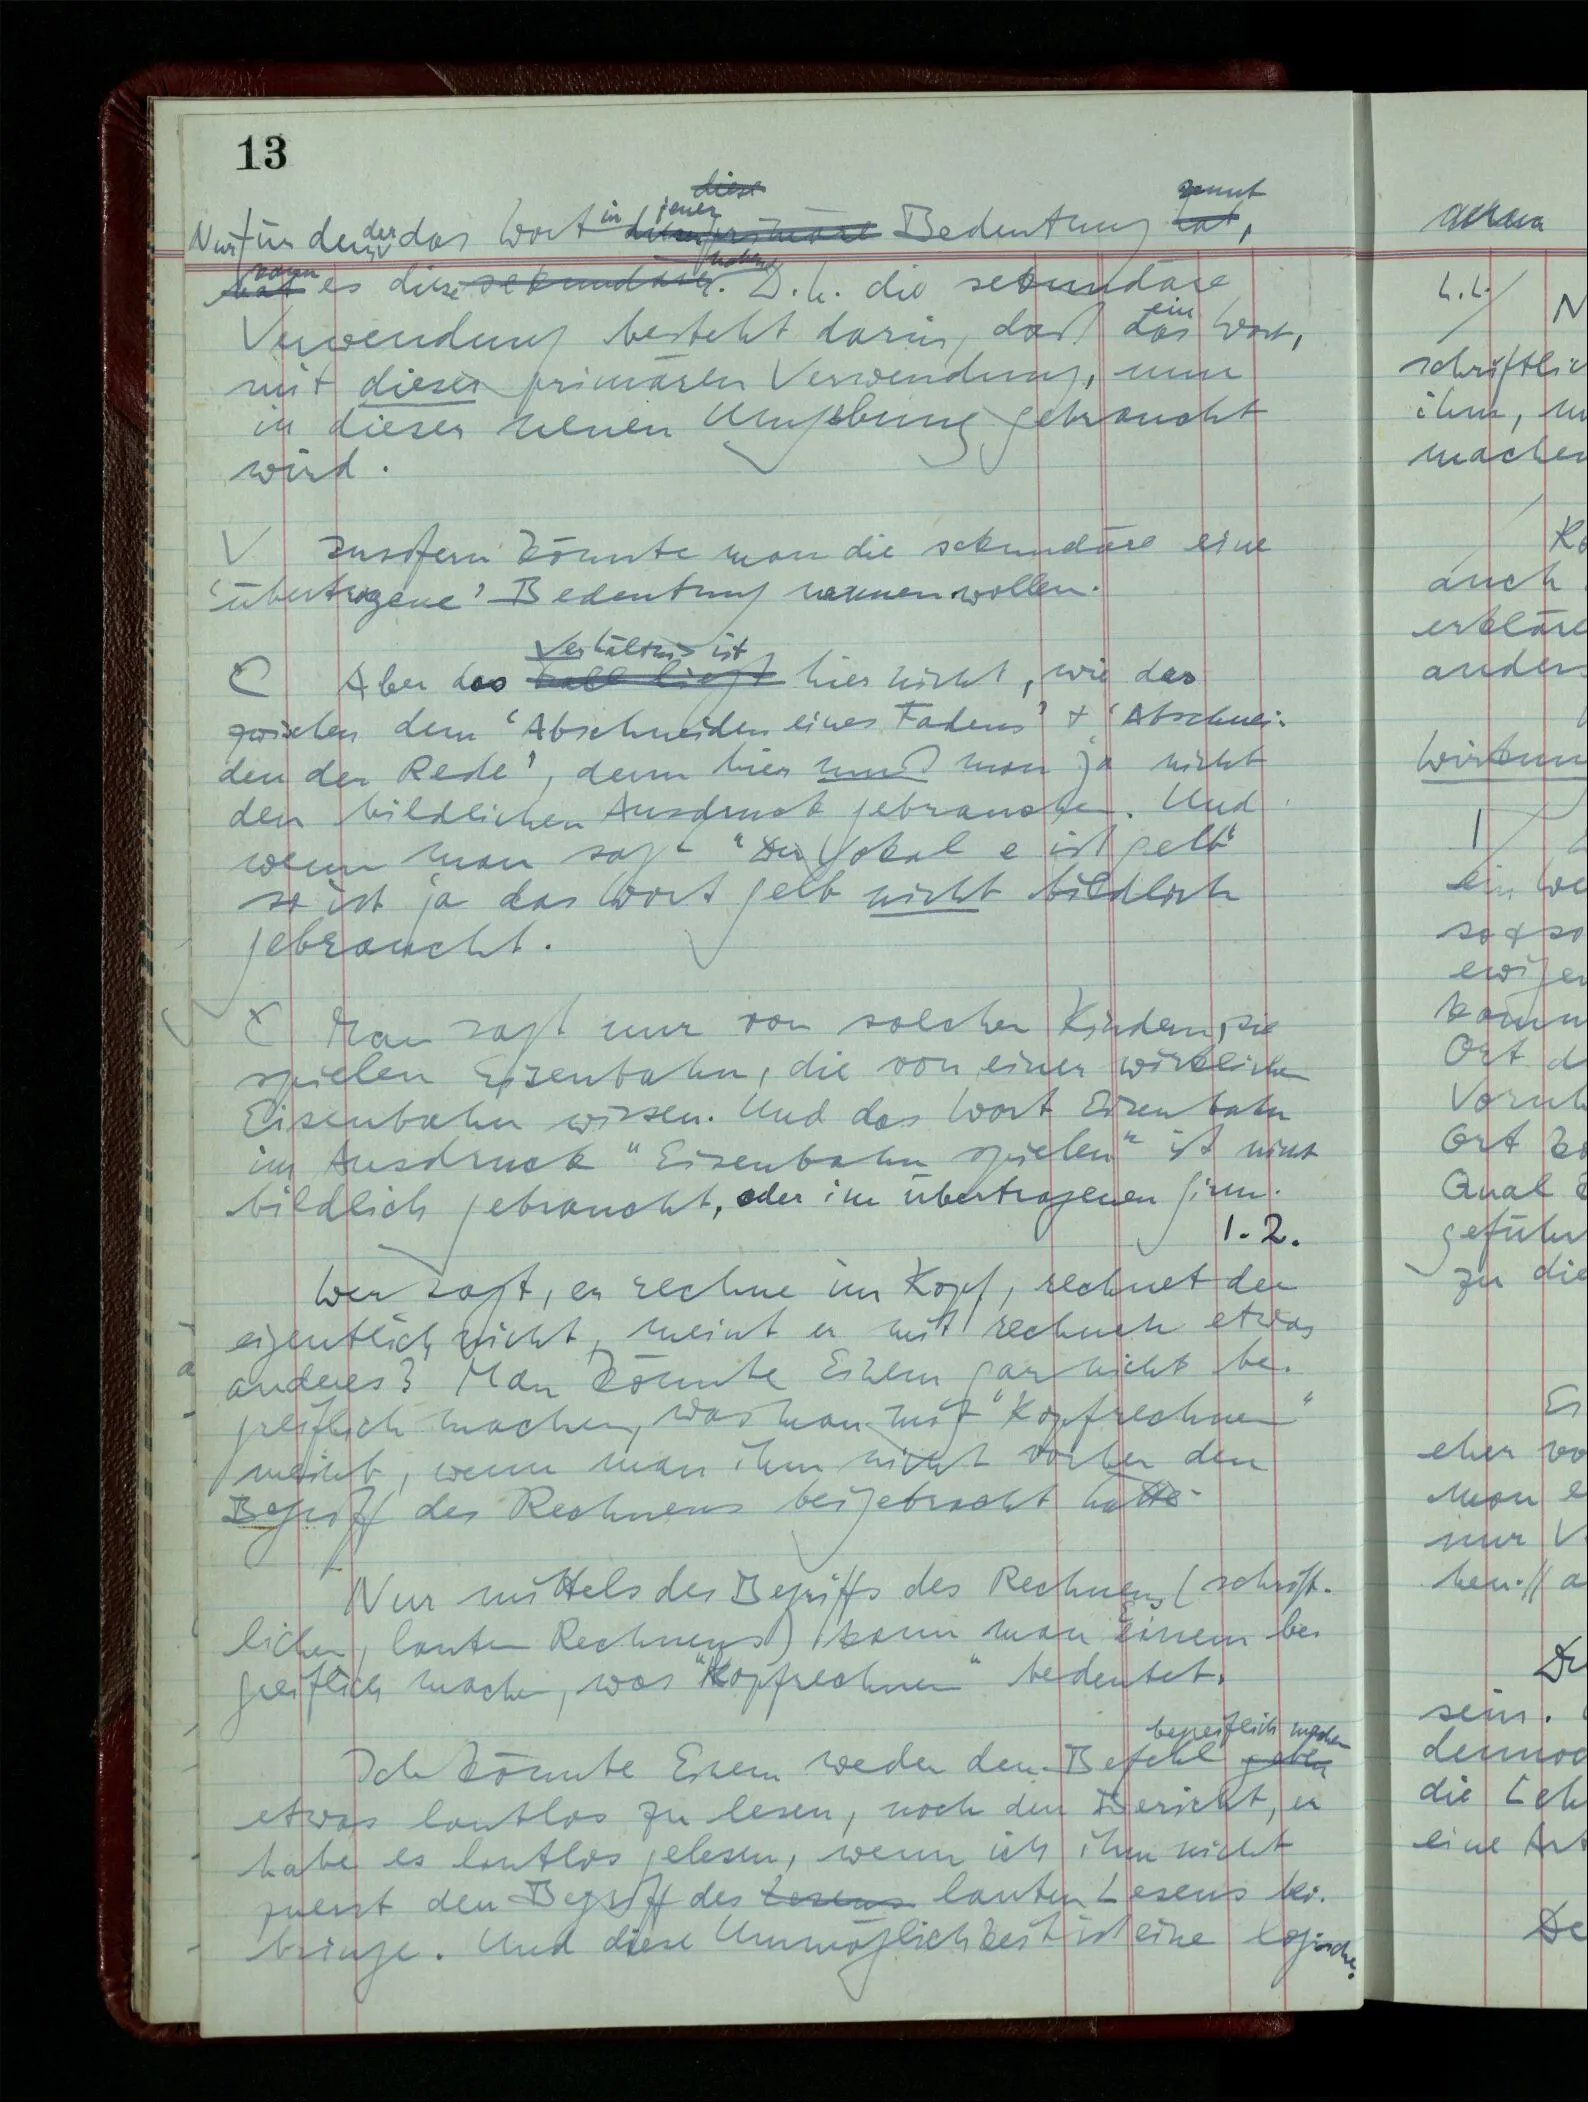 13
diese
in jener kennt
Nur für den der das Wort diese primäre Bedeutung hat,
kann haben
hat es diese sekundäre. D.h. die sekundäre
ein
Verwendung besteht darin, daß das Wort,
mit dieser primären Verwendung, nun
in dieser neuen Umgebung gebraucht
wird.
V Insofern könnte man die sekundäre eine
'übertragene' Bedeutung nennen wollen.
Verhältnis ist
C Aber das Fall liegt hier nicht, wie das
zwischen dem 'Abschneiden eines Fadens' + 'Abschnei-
den der Rede', denn hier muß man ja nicht
den bildlichen Ausdruck gebrauchen. Und
wenn man sagt "Der Vokal e ist gelb"
so ist ja das Wort gelb nicht bildlich
gebraucht.
C Man sagt nur von solchen Kindern, sie
spielen Eisenbahn, die von einer wirklichen
Eisenbahn wissen. Und das Wort Eisenbahn
im Ausdruck "Eisenbahn spielen" ist nicht
bildlich gebraucht, oder im übertragenen Sinn.
1.2.
Wer sagt, er rechne im Kopf, rechnet der
eigentlich nicht, meint er mit rechnen etwas
anderes? Man könnte Einem gar nicht be-
greiflich machen, was man mit "Kopfrechnen"
meint, wenn man ihm nicht vorher den
Begriff des Rechnens beigebracht hätte.
Nur mittels des Begriffs des Rechnens (schrift-
lichen, lauten Rechnens) kann man Einem be-
greiflich machen, was "Kopfrechnen" bedeutet.
begreiflich machen
Ich könnte Einem weder den Befehl geben
etwas lautlos zu lesen, noch den Bericht, er
habe es lautlos gelesen, wenn ich ihm nicht
zuerst den Begriff des Lesens lauten Lesens bei-
bringe. Und diese Unmöglichkeit ist eine logische.
N
schriftlic
ihm,
machen
auch
erkläre
anders
Wirkun
ein We
so + so
ewigen
komm
Ort d
Ort
Qual
geführ
zu die
eher vo
man e
nur V
sein.
dennoc
die Leh
eine Art
De